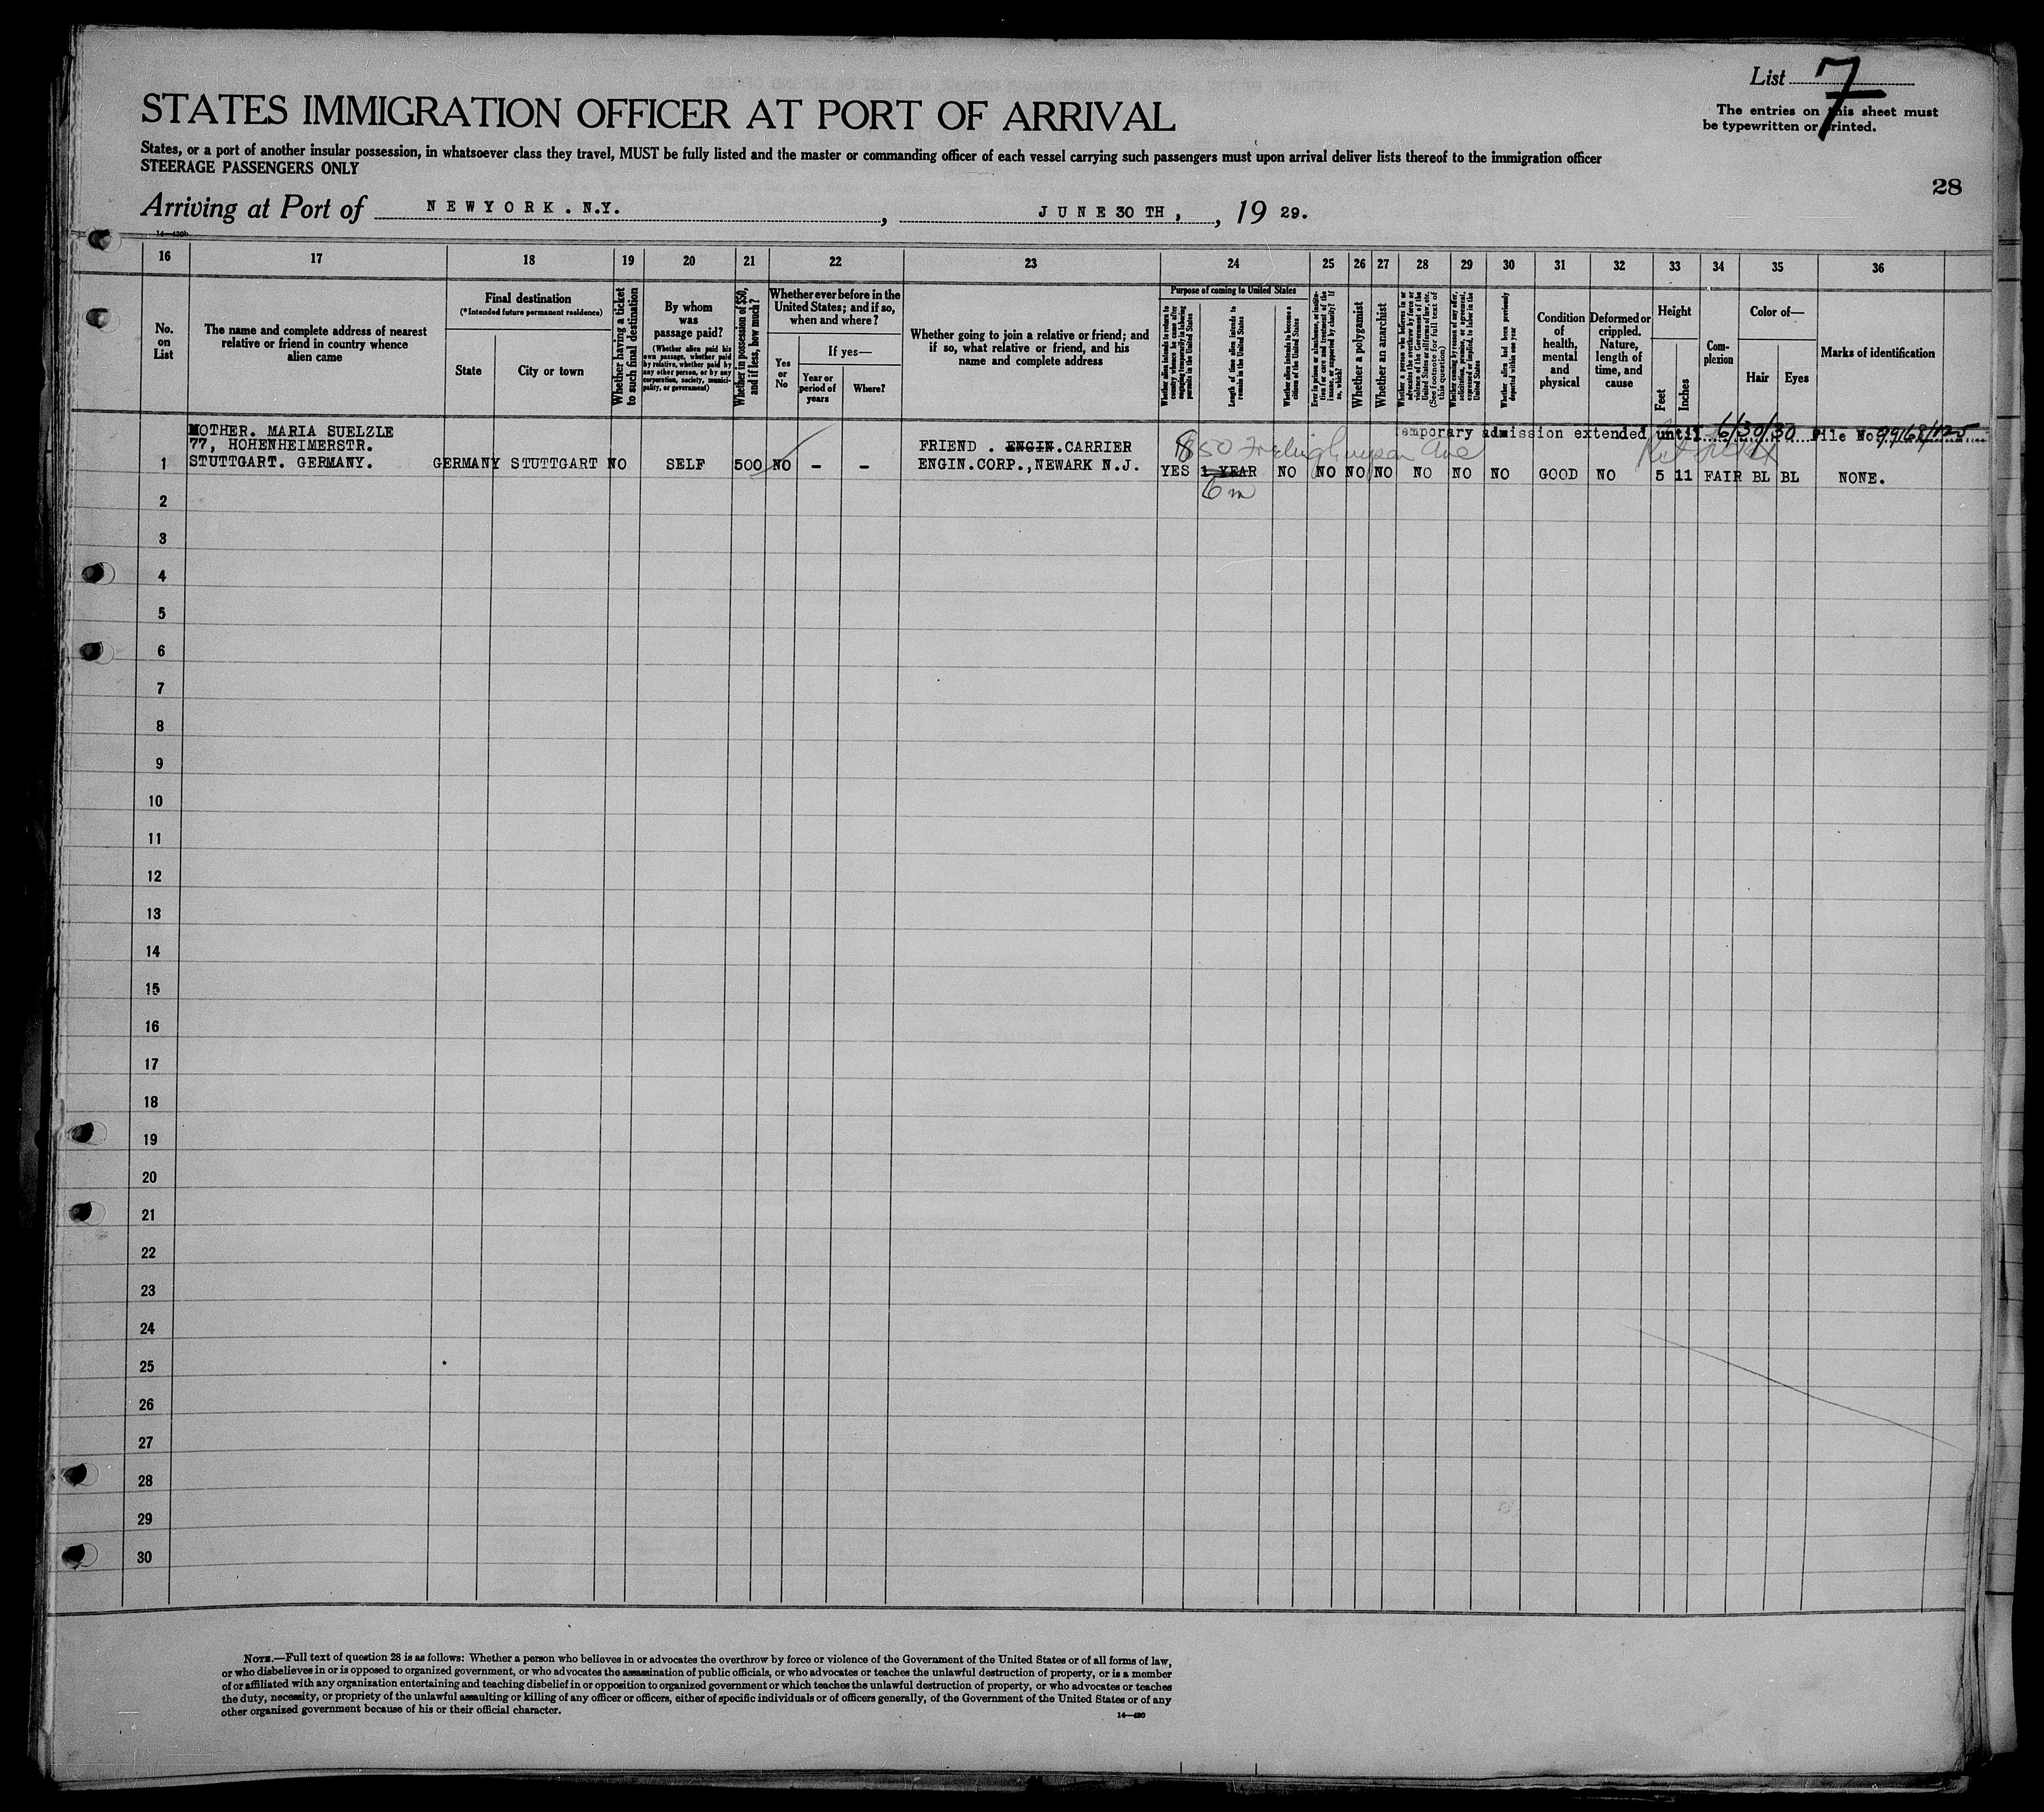 List 7
STATES IMMIGRATION OFFICER AT PORT OF ARRIVAL
The entries on this sheet must
be typewritten or printed.
States, or a port of another insular possession, in whatsoever class they travel, MUST be fully listed and the master or commanding officer of each vessel carrying such passengers must upon arrival deliver lists thereof to the immigration officer
STEERAGE PASSENGERS ONLY
28
Arriving at Port of NEWYORK. N.Y., JUNE 30 TH, , 19 29.
14—430b
16 17 18 19 20 21 22 23 24 25 26 27 28 29 30 31 32 33 34 35 36
No. on List
The name and complete address of nearest
relative or friend in country whence
alien came
Final destination
(*Intended future permanent residence)
State
City or town
Whether having a ticket
to such final destination
By whom
was
passage paid?
(Whether alien paid his
own passage, whether paid
by relative, whether paid by
any other person, or by any
corporation, society, munici-
pality, or government)
Whether in possession of $50,
and if less, how much?
Whether ever before in the
United States; and if so,
when and where?
Yes
or
No
If yes—
Year or
period of
years
Where?
Whether going to join a relative or friend; and
if so, what relative or friend, and his
name and complete address
Purpose of coming to United States
Whether alien intends to return to
country whence he came after
engaging temporarily in laboring
pursuits in the United States
Length of time alien intends to
remain in the United States
Whether alien intends to become a
citizen of the United States
Ever in prison or almshouse, or institu-
tion for care and treatment of the
insane, or supported by charity? If
so, which?
Whether a polygamist
Whether an anarchist
Whether a person who believes in or
advocates the overthrow by force or
violence of the Government of the
United States or all forms of law, etc.
(See footnote for full text of
this question)
Whether coming by reason of any offer,
solicitation, promise, or agreement,
expressed or implied, to labor in the
United States
Whether alien had been previously
deported within one year
Condition
of
health,
mental
and
physical
Deformed or
crippled.
Nature,
length of
time, and
cause
Height
Feet
Inches
Com-
plexion
Color of—
Hair
Eyes
Marks of identification
MOTHER. MARIA SUELZLE
77, HOHENHEIMERSTR.
1 STUTTGART. GERMANY. GERMANY STUTTGART NO SELF 500 NO - -
FRIEND . ENGIN.CARRIER
ENGIN.CORP.,NEWARK N.J.
temporary admission extended until 6/30/30 File No. 99168/125
850 Frelinghuysen Ave
YES 1 YEAR NO NO NO NO NO NO NO GOOD NO 5 11 FAIR BL BL NONE.
6 m
2
3
4
5
6
7
8
9
10
11
12
13
14
15
16
17
18
19
20
21
22
23
24
25
26
27
28
29
30
NOTE.—Full text of question 28 is as follows: Whether a person who believes in or advocates the overthrow by force or violence of the Government of the United States or of all forms of law,
or who disbelieves in or is opposed to organized government, or who advocates the assassination of public officials, or who advocates or teaches the unlawful destruction of property, or is a member
of or affiliated with any organization entertaining and teaching disbelief in or opposition to organized government or which teaches the unlawful destruction of property, or who advocates or teaches
the duty, necessity, or propriety of the unlawful assaulting or killing of any officer or officers, either of specific individuals or of officers generally, of the Government of the United States or of any
other organized government because of his or their official character.
14—430